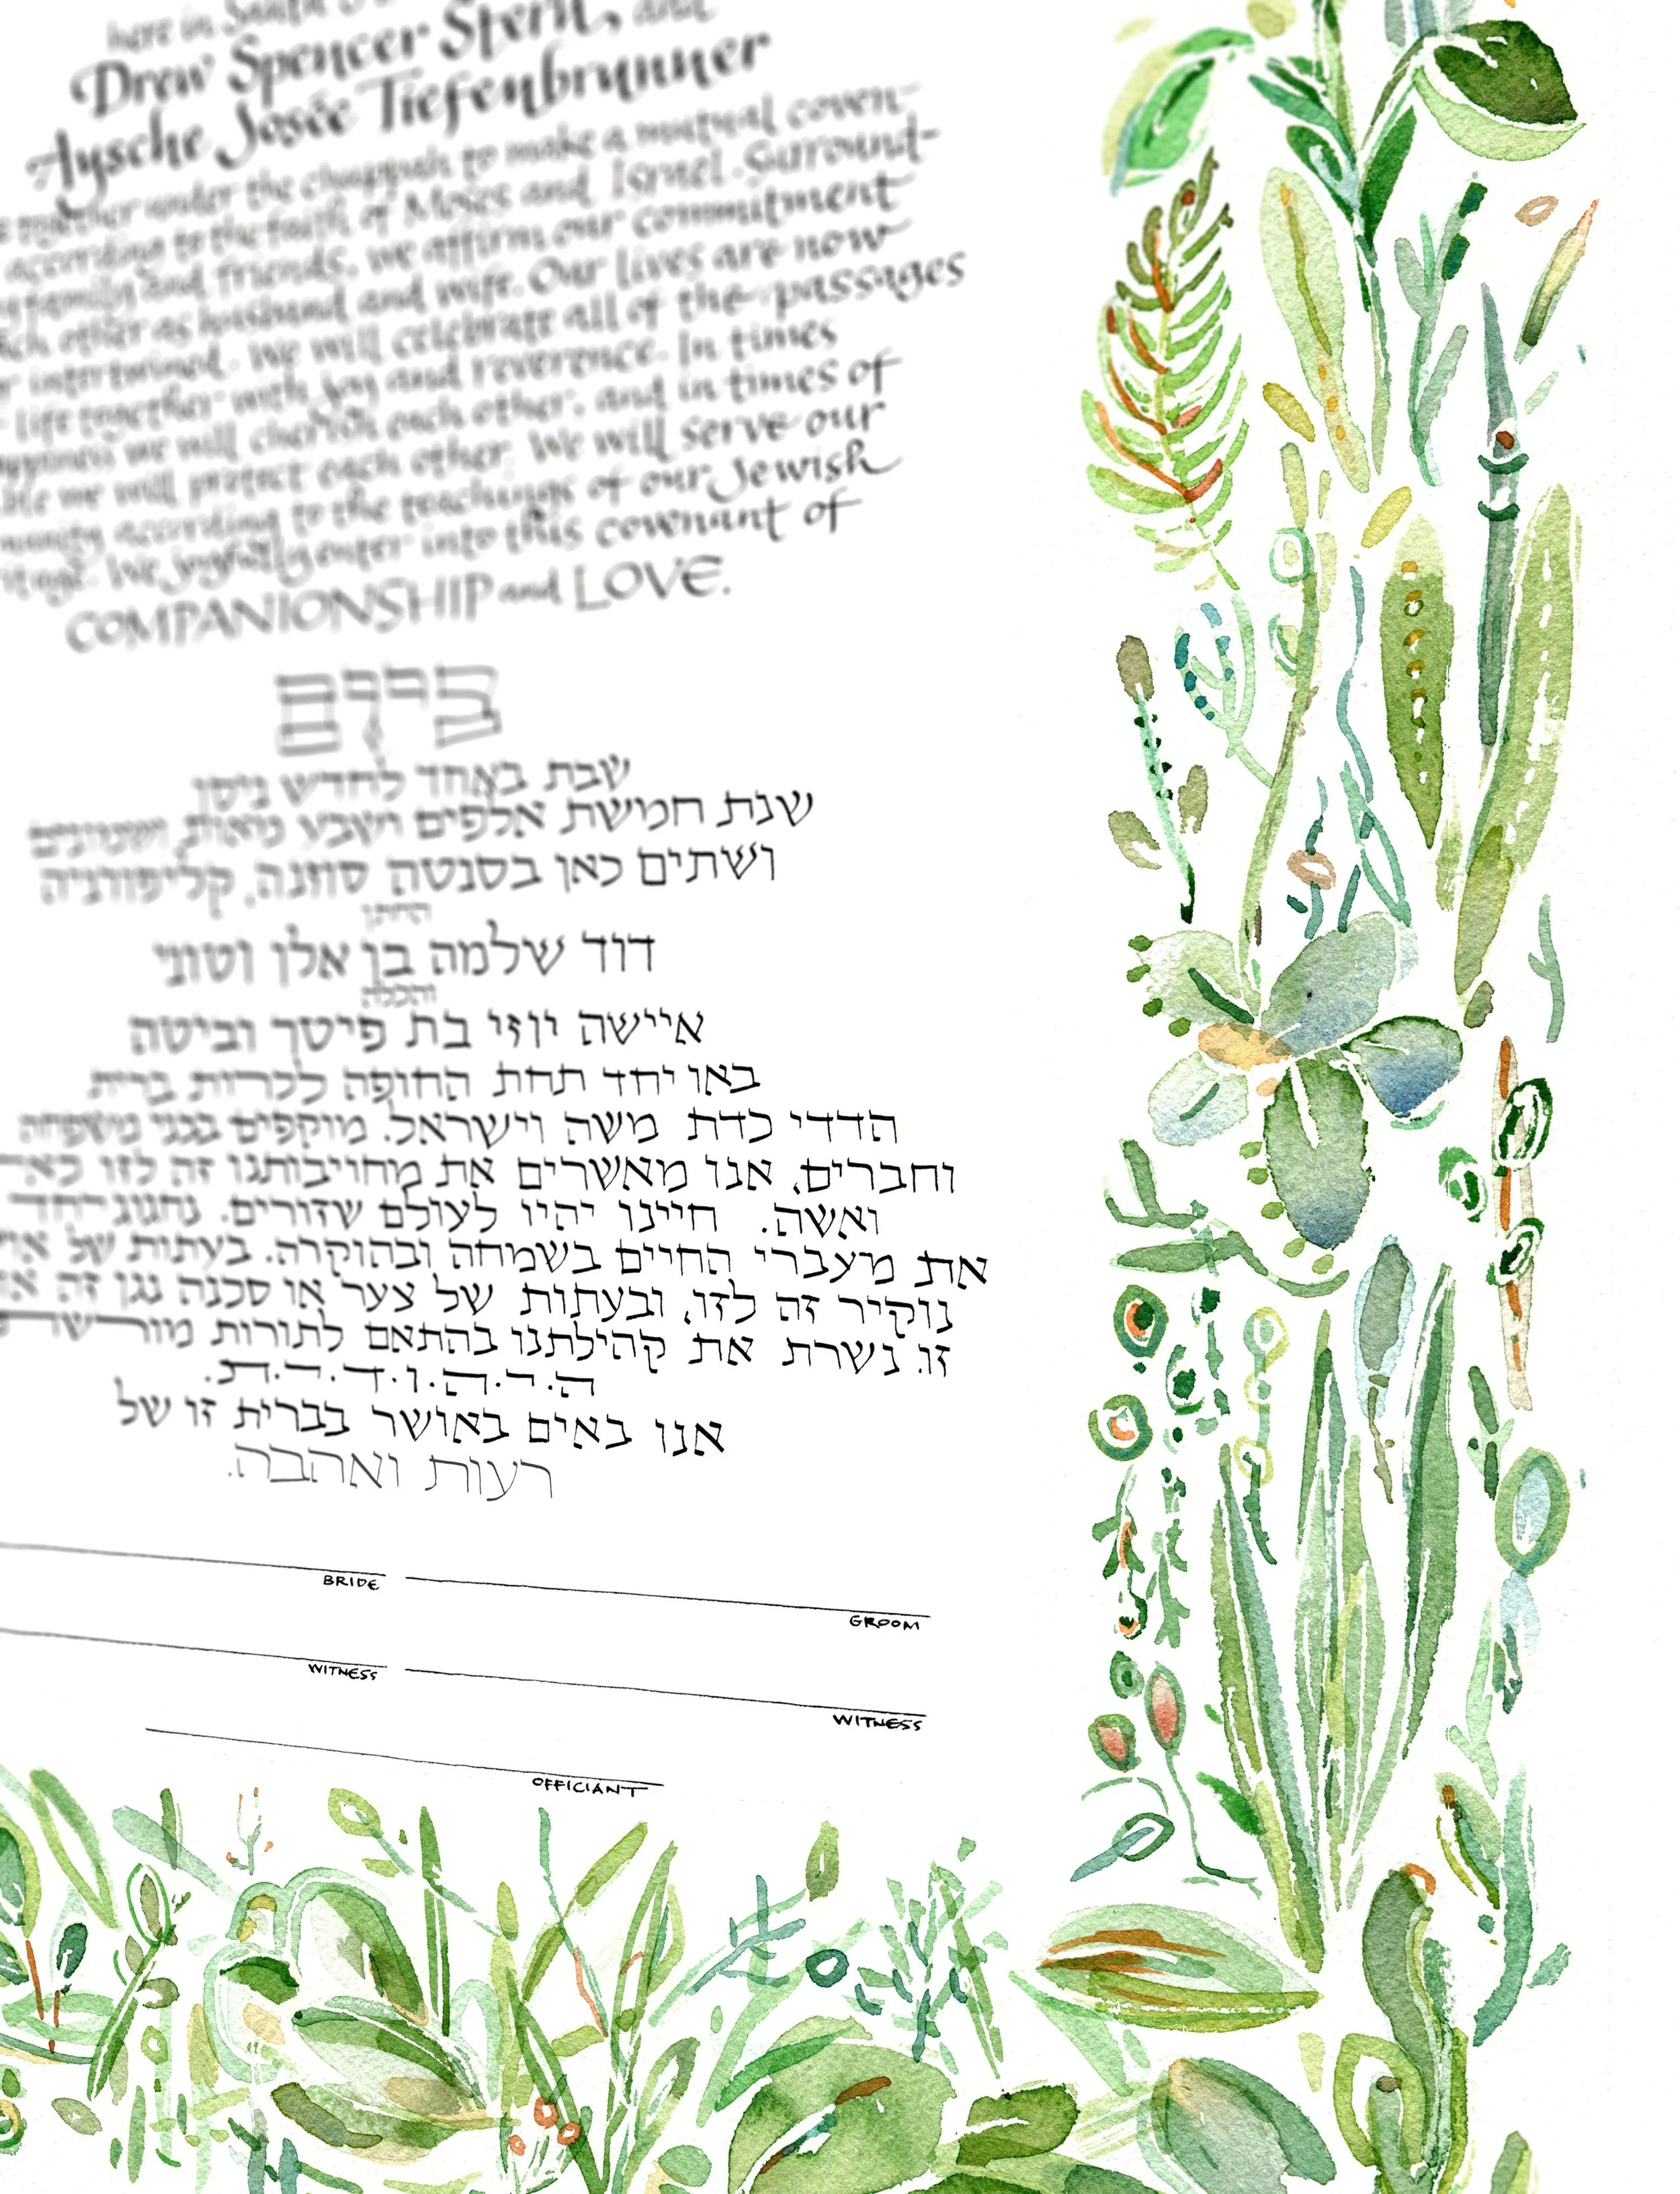 here in
Drew Spencer Stern, and
Aysche Josée Tiefenbrunner
together under the chuppah to make a mutual coven-
according to the faith of Moses and Israel. Surround-
family and friends, we affirm our commitment
other as husband and wife. Our lives are now
intertwined. We will celebrate all of the passages
life together with joy and reverence. In times
we will cherish each other, and in times of
we will protect each other. We will serve our
according to the teachings of our Jewish
We joyfully enter into this covenant of
COMPANIONSHIP and LOVE.
ביום
שבת באחד לחדש ניסן
שנת חמישת אלפים ושבע מאות ושמונים
ושתים כאן בסנטה סוזנה, קליפורניה
החתן
דוד שלמה בן אלן וטוני
והכלה
איישה יוזי בת פיטר וביטה
באו יחד תחת החופה לכרות ברית
הדדי כדת משה וישראל. מוקפים בבני משפחה
וחברים, אנו מאשרים את מחויבותנו זה לזו
ואשה. חיינו יהיו לעולם שזורים. נחגוג יחד
את מעברי החיים בשמחה ובהוקרה. בעתות של
נוקיר זה לזו, ובעתות של צער או סכנה נגן זה
זו. נשרת את קהילתנו בהתאם לתורות
ה.ר.ה.ו.ד.ר.ת.
אנו באים באושר בברית זו של
רעות ואהבה.
BRIDE GROOM
WITNESS WITNESS
OFFICIANT